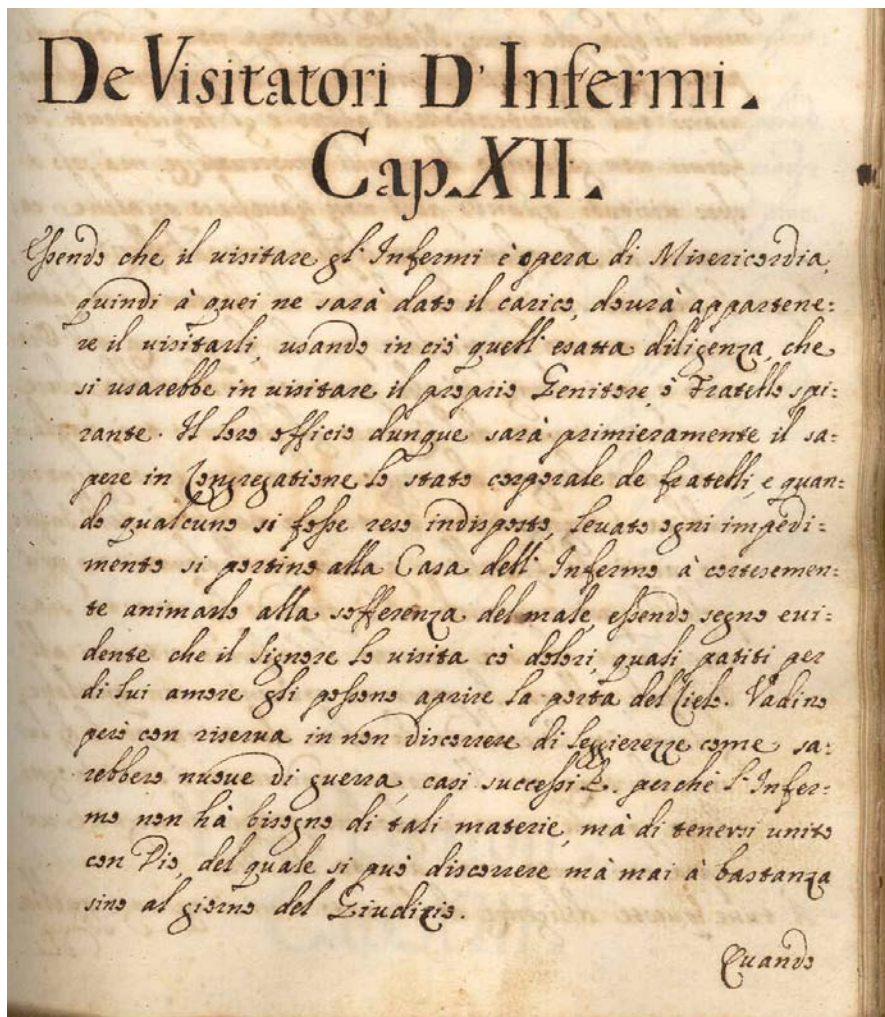 De Visitatori D' Infermi.
Cap. XII.
Essendo che il uisitare gl' Infermi è opera di Misericordia,
quindi à quei ne sarà dato il carico, dourà appartene:
re il uisitarli, usando in ciò quell' esatta diligenza, che
si usarebbe in uisitare il proprio Genitore, ò Fratello spi:
rante. Il loro officio dunque sarà primieramente il sa:
pere in Congregatione lo stato corporale de fratelli, e quan:
do qualcuno si fosse reso indisposto, leuato ogni impedi:
mento si portino alla Casa dell' Infermo à cortesemen:
te animarlo alla sofferenza del male, essendo segno eui:
dente che il Signore lo uisita cò dolori, quali patiti per
di lui amore gli possono aprire la porta del Cielo. Vadino
però con riserua in non discorrere di leggierezze come sa:
rebbero nuoue di guerra, casi successi &. perchè l' Infer:
mo non hà bisogno di tali materie, mà di tenersi unito
con Dio, del quale si può discorrere mà mai à bastanza
sino al giorno del Giudizio.
Quando